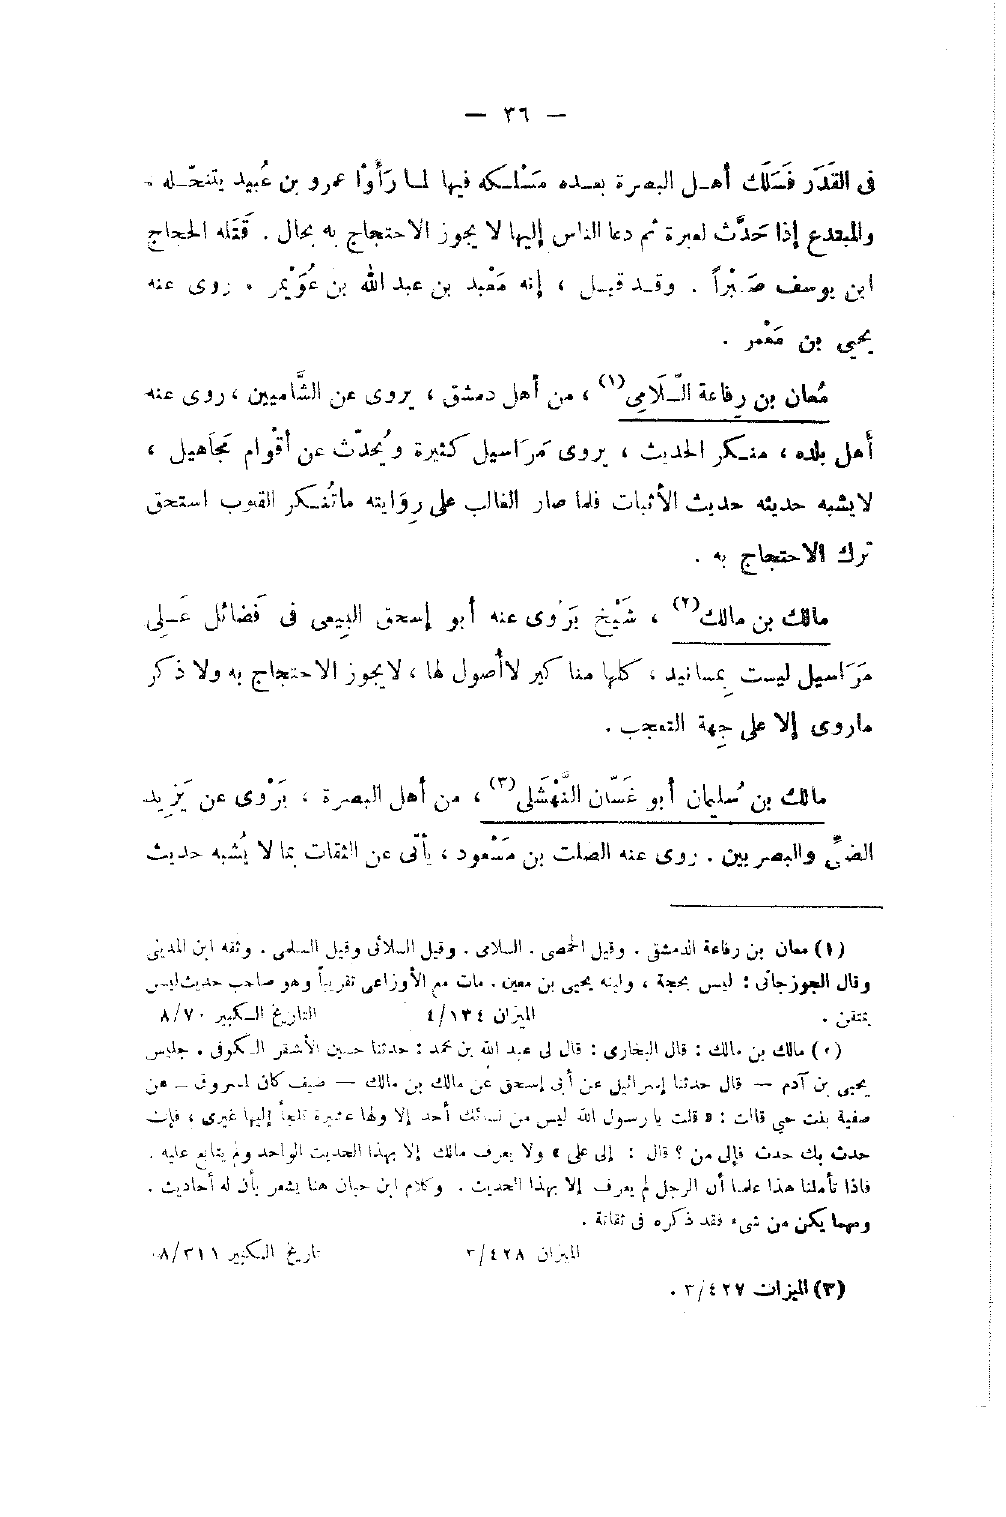 — ٣٦ —
فى القَدَر فَسَلَك أهـل البصرة بعـده مَسْلـكه فيها لمـا رَأَوْا عمرو بن عُبيد ينتحّـله .
والمبتدع إذا حَدَّث لعبرة ثم دعا الناس إليها لا يجوز الاحتجاج به بحال . قَتَله الحجاج
ابن يوسف صَبْراً . وقـد قيـل ، إنه مَعْبد بن عبد الله بن عُوَيْمر . روى عنه
يحيى بن مَعْمر .
مُعان بن رِفاعة السَّلَامِى(١) ، من أهل دمشق ، يروى عن الشَّاميين ، روى عنه
أهل بلده ، منـكر الحديث ، يروى مَرَاسيل كثيرة ويُحدّث عن أقْوام مَجَاهيل ،
لايشبه حديثه حديث الأثبات فلما صار الغالب على رِوَايته ماتُنـكر القلوب استحق
ترك الاحتجاج به .
مالك بن مالك(٢) ، شَيْخ يَرْوى عنه أبو إسحق السَّبِيعى فى فَضائل عَـلِى
مَرَاسيل ليست بِمسانيد ، كلها مناكير لاأصول لها ، لايجوز الاحتجاج به ولا ذكر
ماروى إلا على جِهة التعجب .
مالك بن سُليمان أبو غَسَّان النَّهْشَلى(٣) ، من أهل البصرة ، يَرْوى عن يَزِيد
الضبِّى والبصريين . روى عنه الصلت بن مَسْعود ، يأتى عن الثقات بما لا يُشبه حديث
(١) معان بن رفاعة الدمشقى . وقيل الحمصى . السلامى . وقيل السلائى وقيل السلمى . وثقه ابن المدينى
وقال الجوزجانى : ليس بحجة ، ولينه يحيى بن معين . مات مع الأوزاعى تقريباً وهو صاحب حديث ليس
بمتقن . الميزان ٤/١٣٤ التاريخ الـكبير ٨/٧٠
(٢) مالك بن مالك : قال البخارى : قال لى عبد الله بن محمد : حدثنا حسين الأشقر الـكوفى . جليس
يحيى بن آدم — قال حدثنا إسرائيل عن أبى إسحق عن مالك بن مالك — ضيف كان لمسروق — عن
صفية بنت حيى قالت : « قلت يا رسول الله ليس من نسائك أحد إلا ولها عشيرة تلجأ إليها غيرى ، فإن
حدث بك حدث فإلى من ؟ قال : إلى على » ولا يعرف مالك إلا بهذا الحديث الواحد ولم يتابع عليه .
فاذا تأملنا هذا علمنا أن الرجل لم يعرف إلا بهذا الحديث . وكلام ابن حبان هنا يشعر بأن له أحاديث .
ومهما يكن من شىء فقد ذكره فى ثقاتة .
الميزان ٣/٤٢٨ تاريخ الـكبير ٨/٣١١
(٣) الميزان ٣/٤٢٧ .